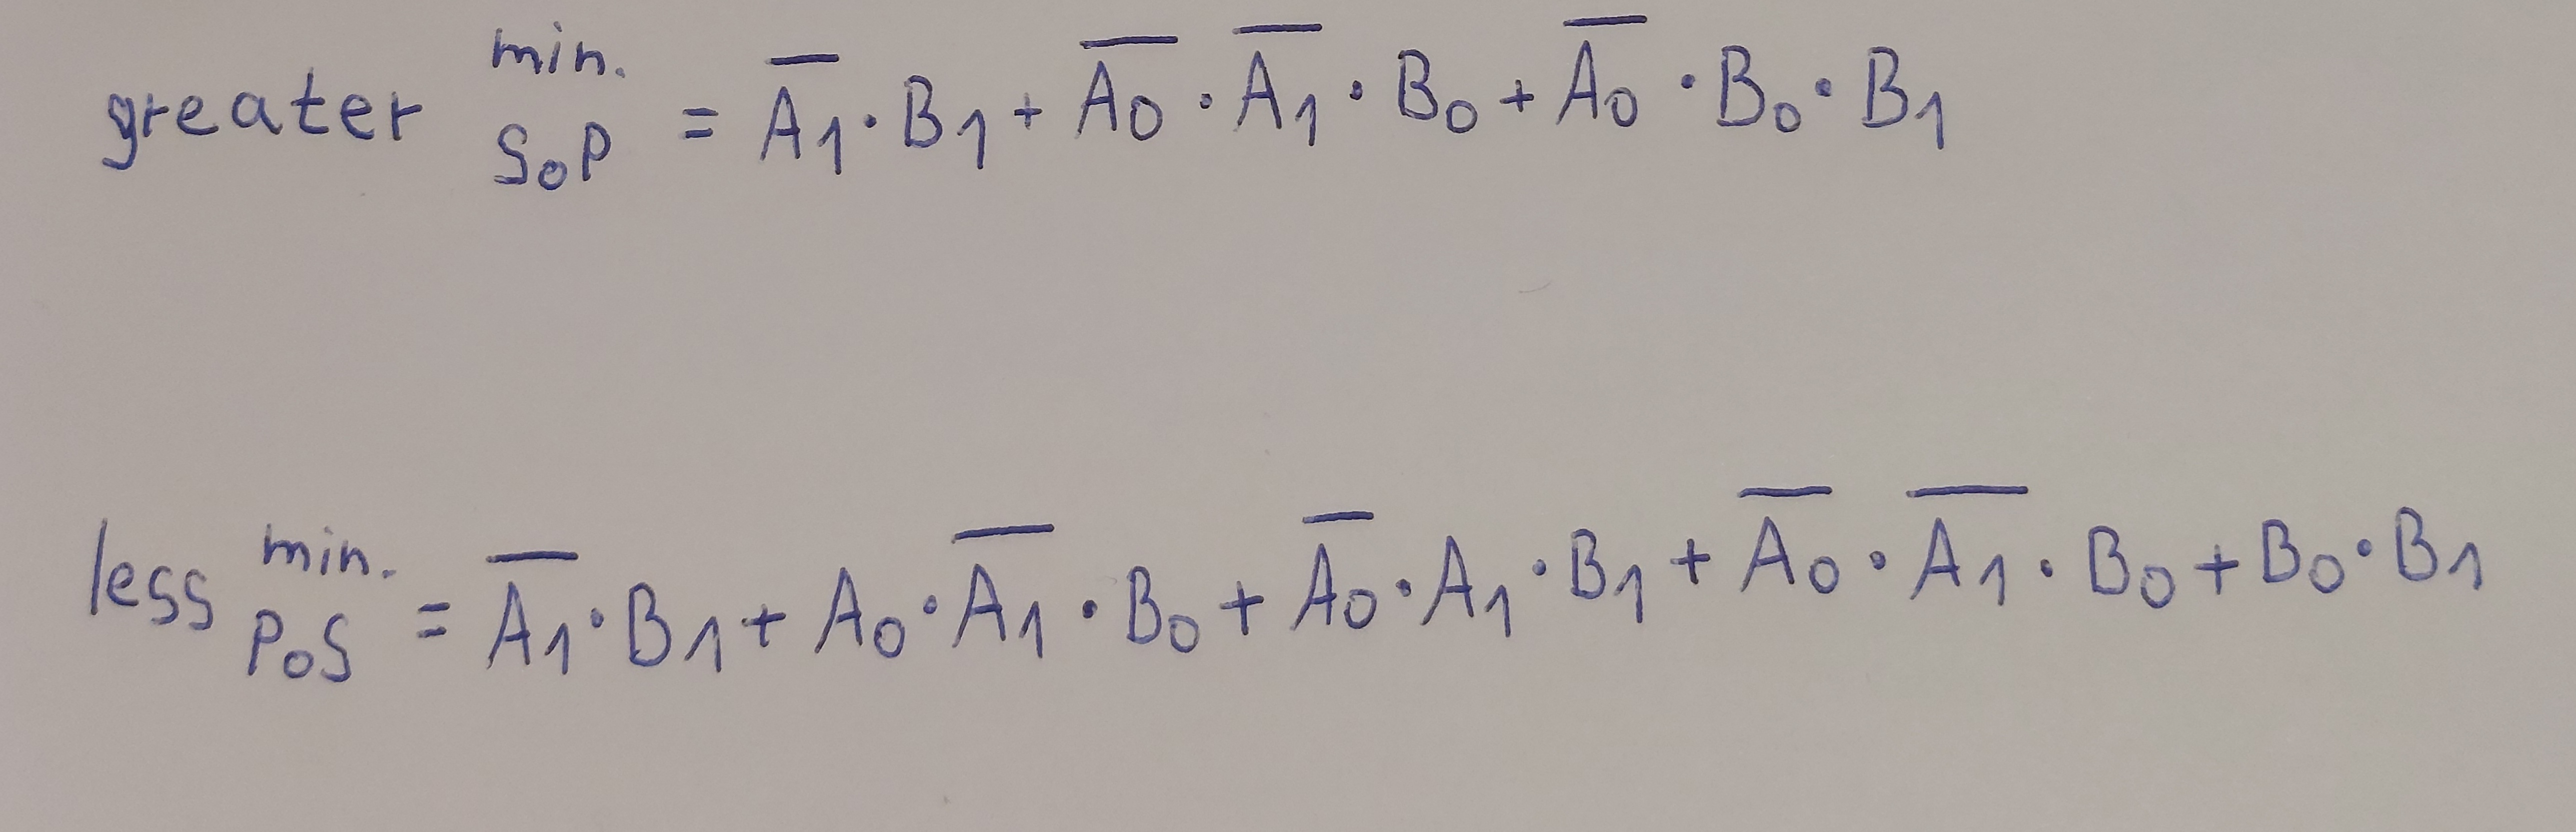 greater min. SOP = A̅₁·B₁ + A̅₀·A̅₁·B₀ + A̅₀·B₀·B₁
less min. POS = A̅₁·B₁ + A₀·A̅₁·B₀ + A̅₀·A₁·B₁ + A̅₀·A̅₁·B₀ + B₀·B₁